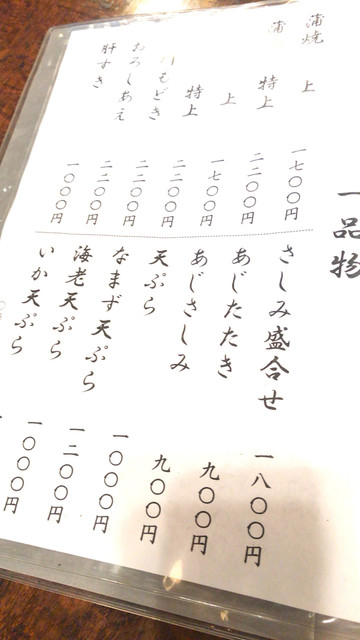 一品物
蒲焼 上 一七〇〇円
蒲 特上 二二〇〇円
上 一七〇〇円
特上 二二〇〇円
もどき 二二〇〇円
おろしあえ 二二〇〇円
肝すき 一〇〇〇円
さしみ盛合せ 一八〇〇円
あじたたき 九〇〇円
あじさしみ 九〇〇円
天ぷら 一〇〇〇円
なまず天ぷら 一二〇〇円
海老天ぷら 一〇〇〇円
いか天ぷら